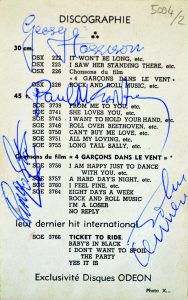 5004/2
DISCOGRAPHIE
George Harrison
30 cm.
OSX 222 IT WON'T BE LONG, etc.
OSX 225 I SAW HER STANDING THERE, etc.
OSX 226 Chansons du film
« 4 GARÇONS DANS LE VENT »
OSX 228 ROCK AND ROLL MUSIC, etc.
Paul McCartney
45 t.
SOE 3739 FROM ME TO YOU, etc.
SOE 3741 SHE LOVES YOU, etc.
SOE 3745 I WANT TO HOLD YOUR HAND, etc.
SOE 3748 ROLL OVER BEETHOVEN, etc.
SOE 3750 CAN'T BUY ME LOVE, etc.
SOE 3751 ALL MY LOVING, etc.
SOE 3755 LONG TALL SALLY, etc.
Chansons du film « 4 GARÇONS DANS LE VENT »
SOE 3756 I AM HAPPY JUST TO DANCE
WITH YOU, etc.
SOE 3757 A HARD DAYS NIGHT, etc.
SOE 3760 I FEEL FINE, etc.
SOE 3764 EIGHT DAYS A WEEK
ROCK AND ROLL MUSIC
I'M A LOSER
NO REPLY
leur dernier hit international
SOE 3766 TICKET TO RIDE
BABYS IN BLACK
I DON'T WANT TO SPOIL
THE PARTY
YES IT IS
Exclusivité Disques ODEON
Photo X...